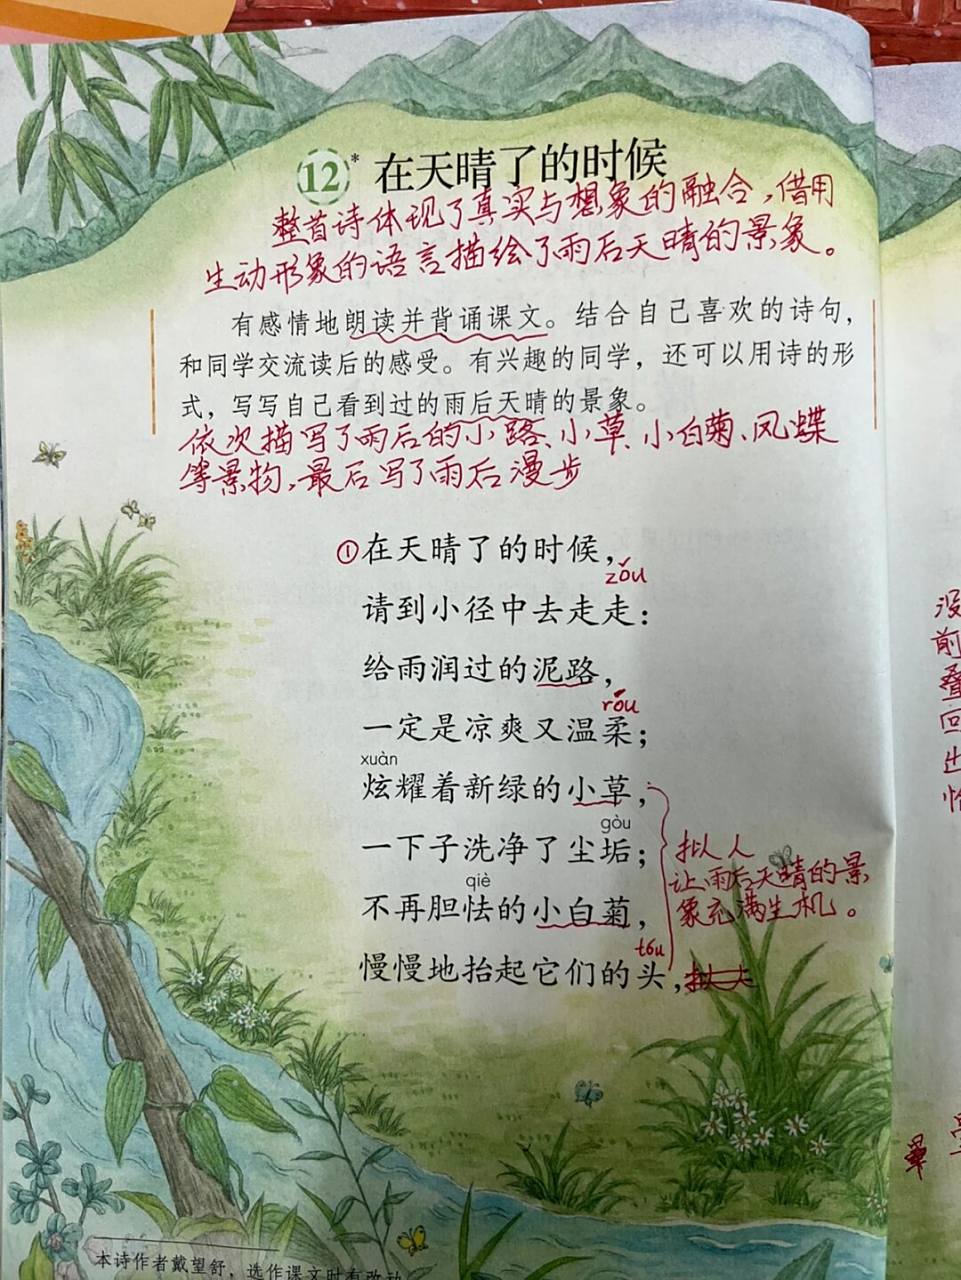 12* 在天晴了的时候
整首诗体现了真实与想象的融合，借用
生动形象的语言描绘了雨后天晴的景象。
有感情地朗读并背诵课文。结合自己喜欢的诗句，
和同学交流读后的感受。有兴趣的同学，还可以用诗的形
式，写写自己看到过的雨后天晴的景象。
依次描写了雨后的小路、小草、小白菊、凤蝶
等景物，最后写了雨后漫步
①在天晴了的时候，
zǒu
请到小径中去走走：
给雨润过的泥路，
róu
一定是凉爽又温柔；
xuàn
炫耀着新绿的小草，
gòu
一下子洗净了尘垢；
拟人
qiè
让雨后天晴的景
不再胆怯的小白菊，
象充满生机。
tóu
慢慢地抬起它们的头，
没
前
叠
回
出
恰
本诗作者戴望舒，选作课文时有改动